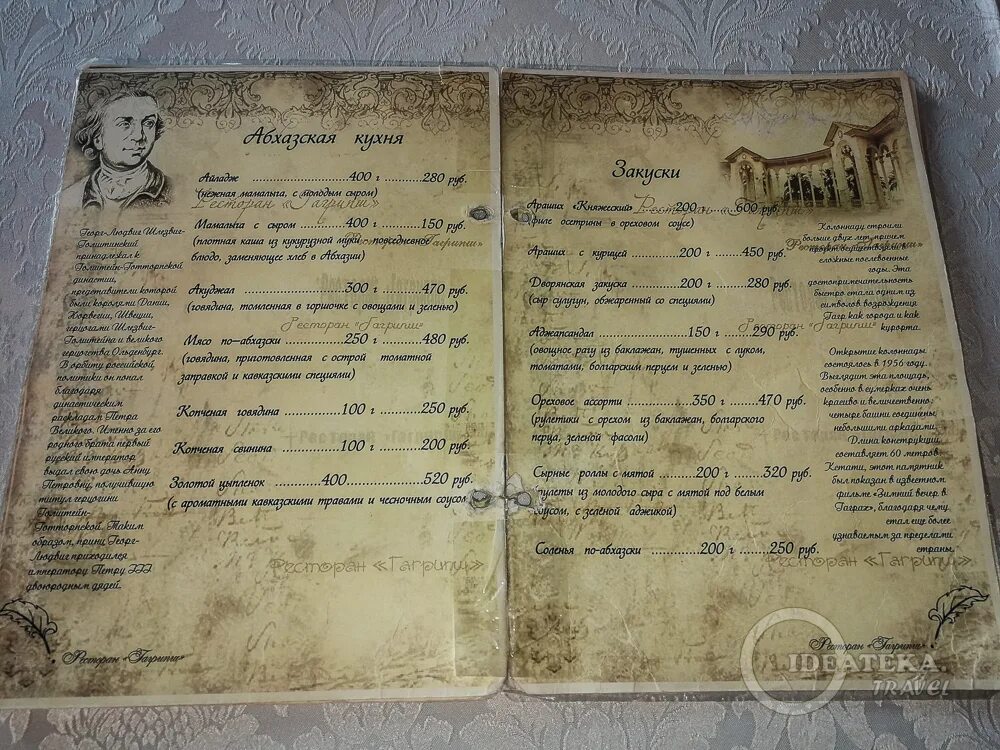 Абхазская кухня
Айладж ........................400 г ...........280 руб.
(нежная мамалыга, с молодым сыром)
Ресторан «Гагрипш»
Мамалыга с сыром ............400 г ...........150 руб.
(плотная каша из кукурузной муки - повседневное
блюдо, заменяющее хлеб в Абхазии)
Акуджал ........................300 г ..........470 руб.
(говядина, томленная в горшочке с овощами и зеленью)
Ресторан "Гагрипш"
Мясо по-абхазски ...............250 г ..........480 руб.
(говядина, приготовленная с острой томатной
заправкой и кавказскими специями)
Копченая говядина ..............100 г ..........250 руб.
Копченая свинина ...............100 г ..........200 руб.
Золотой цыпленок ............400..................520 руб.
(с ароматными кавказскими травами и чесночным соусом
Ресторан «Гагрипш»
Георг-Людвиг Шлезвиг-
Голштинский
принадлежал к
Голштейн-Готторпской
династии,
представители которой
были королями Дании,
Норвегии, Швеции,
герцогами Шлезвиг-
Голштейна и великого
герцогства Ольденбург.
В орбиту российской
политики он попал
благодаря
династическим
раскладам Петра
Великого. Именно за его
родного брата первый
русский император
выдал свою дочь Анну
Петровну, получившую
титул герцогини
Голштейн-
Готторпской. Таким
образом, принц Георг-
Людвиг приходился
императору Петру III
двоюродным дядей.
Ресторан «Гагрипш»
Закуски
Арашых «Княжеский» 200 .........600 руб.
(филе осетрины в ореховом соусе)
Арашых с курицей ...............200 г ..........450 руб.
Дворянская закуска ..............200 г ..........280 руб.
(сыр сулугун, обжаренный со специями)
Аджапсандал ....................150 г ..........290 руб.
Ресторан "Гагрипш"
(овощное рагу из баклажан, тушенных с луком,
томатами, болгарским перцем и зеленью)
Ореховое ассорти ................350 г ..........470 руб.
(рулетики с орехом из баклажан, болгарского
перца, зеленой фасоли)
Сырные роллы с мятой ..........200 г .........320 руб.
рулеты из молодого сыра с мятой под белым
соусом, с зелёной аджикой)
Соленья по-абхазски .............200 г .........250 руб.
Ресторан «Гагрипш»
Колоннаду строили
больше двух лет, причем
проект осуществлялся в
сложные послевоенные
годы. Эта
достопримечательность
быстро стала одним из
символов возрождения
Гагр как города и как
курорта.
Открытие колоннады
состоялось в 1956 году.
Выглядит эта площадь,
особенно в сумерках очень
красиво и величественно:
четыре башни соединены
небольшими аркадами.
Длина конструкции
составляет 60 метров.
Кстати, этот памятник
был показан в известном
фильме «Зимний вечер в
Гаграх», благодаря чему,
стал еще более
узнаваемым за пределами
страны.
Ресторан «Гагрипш»
IDEATEKA
TRAVEL